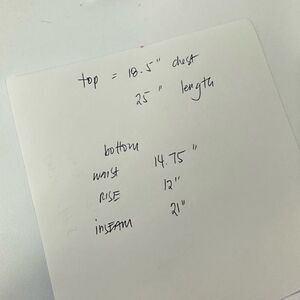 top = 18.5" chest
25" length
bottom
waist 14.75"
RISE 12"
inSEAM 21"